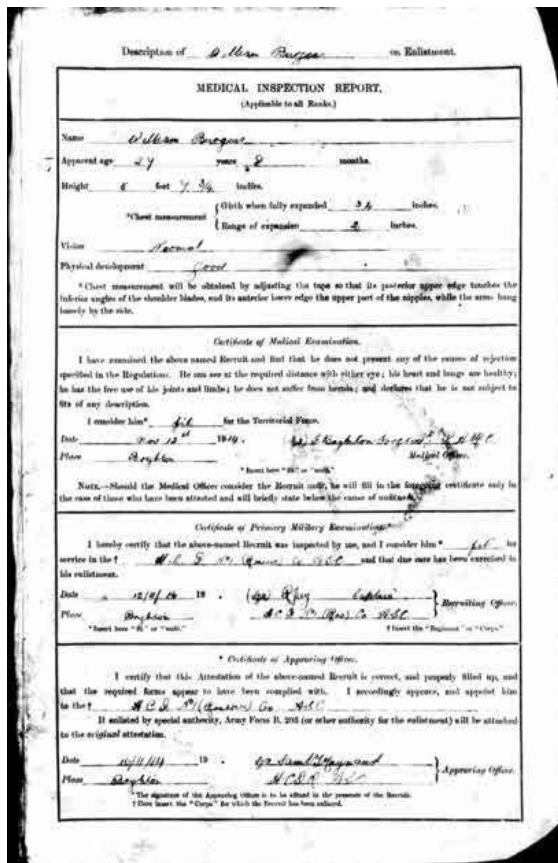 Description of William Burgess on Enlistment.
MEDICAL INSPECTION REPORT.
(Applicable to all Ranks.)
Name William Burgess
Apparent age 27 years 8 months.
Height 5 feet 7 3/4 inches.
*Chest measurement { Girth when fully expanded 34 inches.
Range of expansion 2 inches.
Vision Normal
Physical development Good
*Chest measurement will be obtained by adjusting the tape so that its posterior upper edge touches the
inferior angles of the shoulder blades, and its anterior lower edge the upper part of the nipples, while the arms hang
loosely by the side.
Certificate of Medical Examination.
I have examined the above named Recruit and find that he does not present any of the causes of rejection
specified in the Regulations. He can see at the required distance with either eye; his heart and lungs are healthy;
he has the free use of his joints and limbs; he does not suffer from hernia; and declares that he is not subject to
fits of any description.
I consider him* fit for the Territorial Force.
Date Nov 12th 1914
Place Medical Officer.
*Insert here "fit" or "unfit."
NOTE.—Should the Medical Officer consider the Recruit unfit, he will fill in the foregoing certificate only in
the case of those who have been attested and will briefly state below the cause of unfitness.
Certificate of Primary Military Examination.*
I hereby certify that the above-named Recruit was inspected by me, and I consider him* fit for
service in the† Co ASC and that due care has been exercised in
his enlistment.
Date 12/11/14 19 . Captain
Place Co ASC } Recruiting Officer.
*Insert here "fit" or "unfit." †Insert the "Regiment" or "Corps."
* Certificate of Approving Officer.
I certify that this Attestation of the above-named Recruit is correct, and properly filled up, and
that the required forms appear to have been complied with. I accordingly approve, and appoint him
to the† Co ASC
If enlisted by special authority, Army Form B. 203 (or other authority for the enlistment) will be attached
to the original attestation.
Date 19 .
Place } Approving Officer.
*The signature of the Approving Officer is to be affixed in the presence of the Recruit.
†Here insert the "Corps" for which the Recruit has been enlisted.